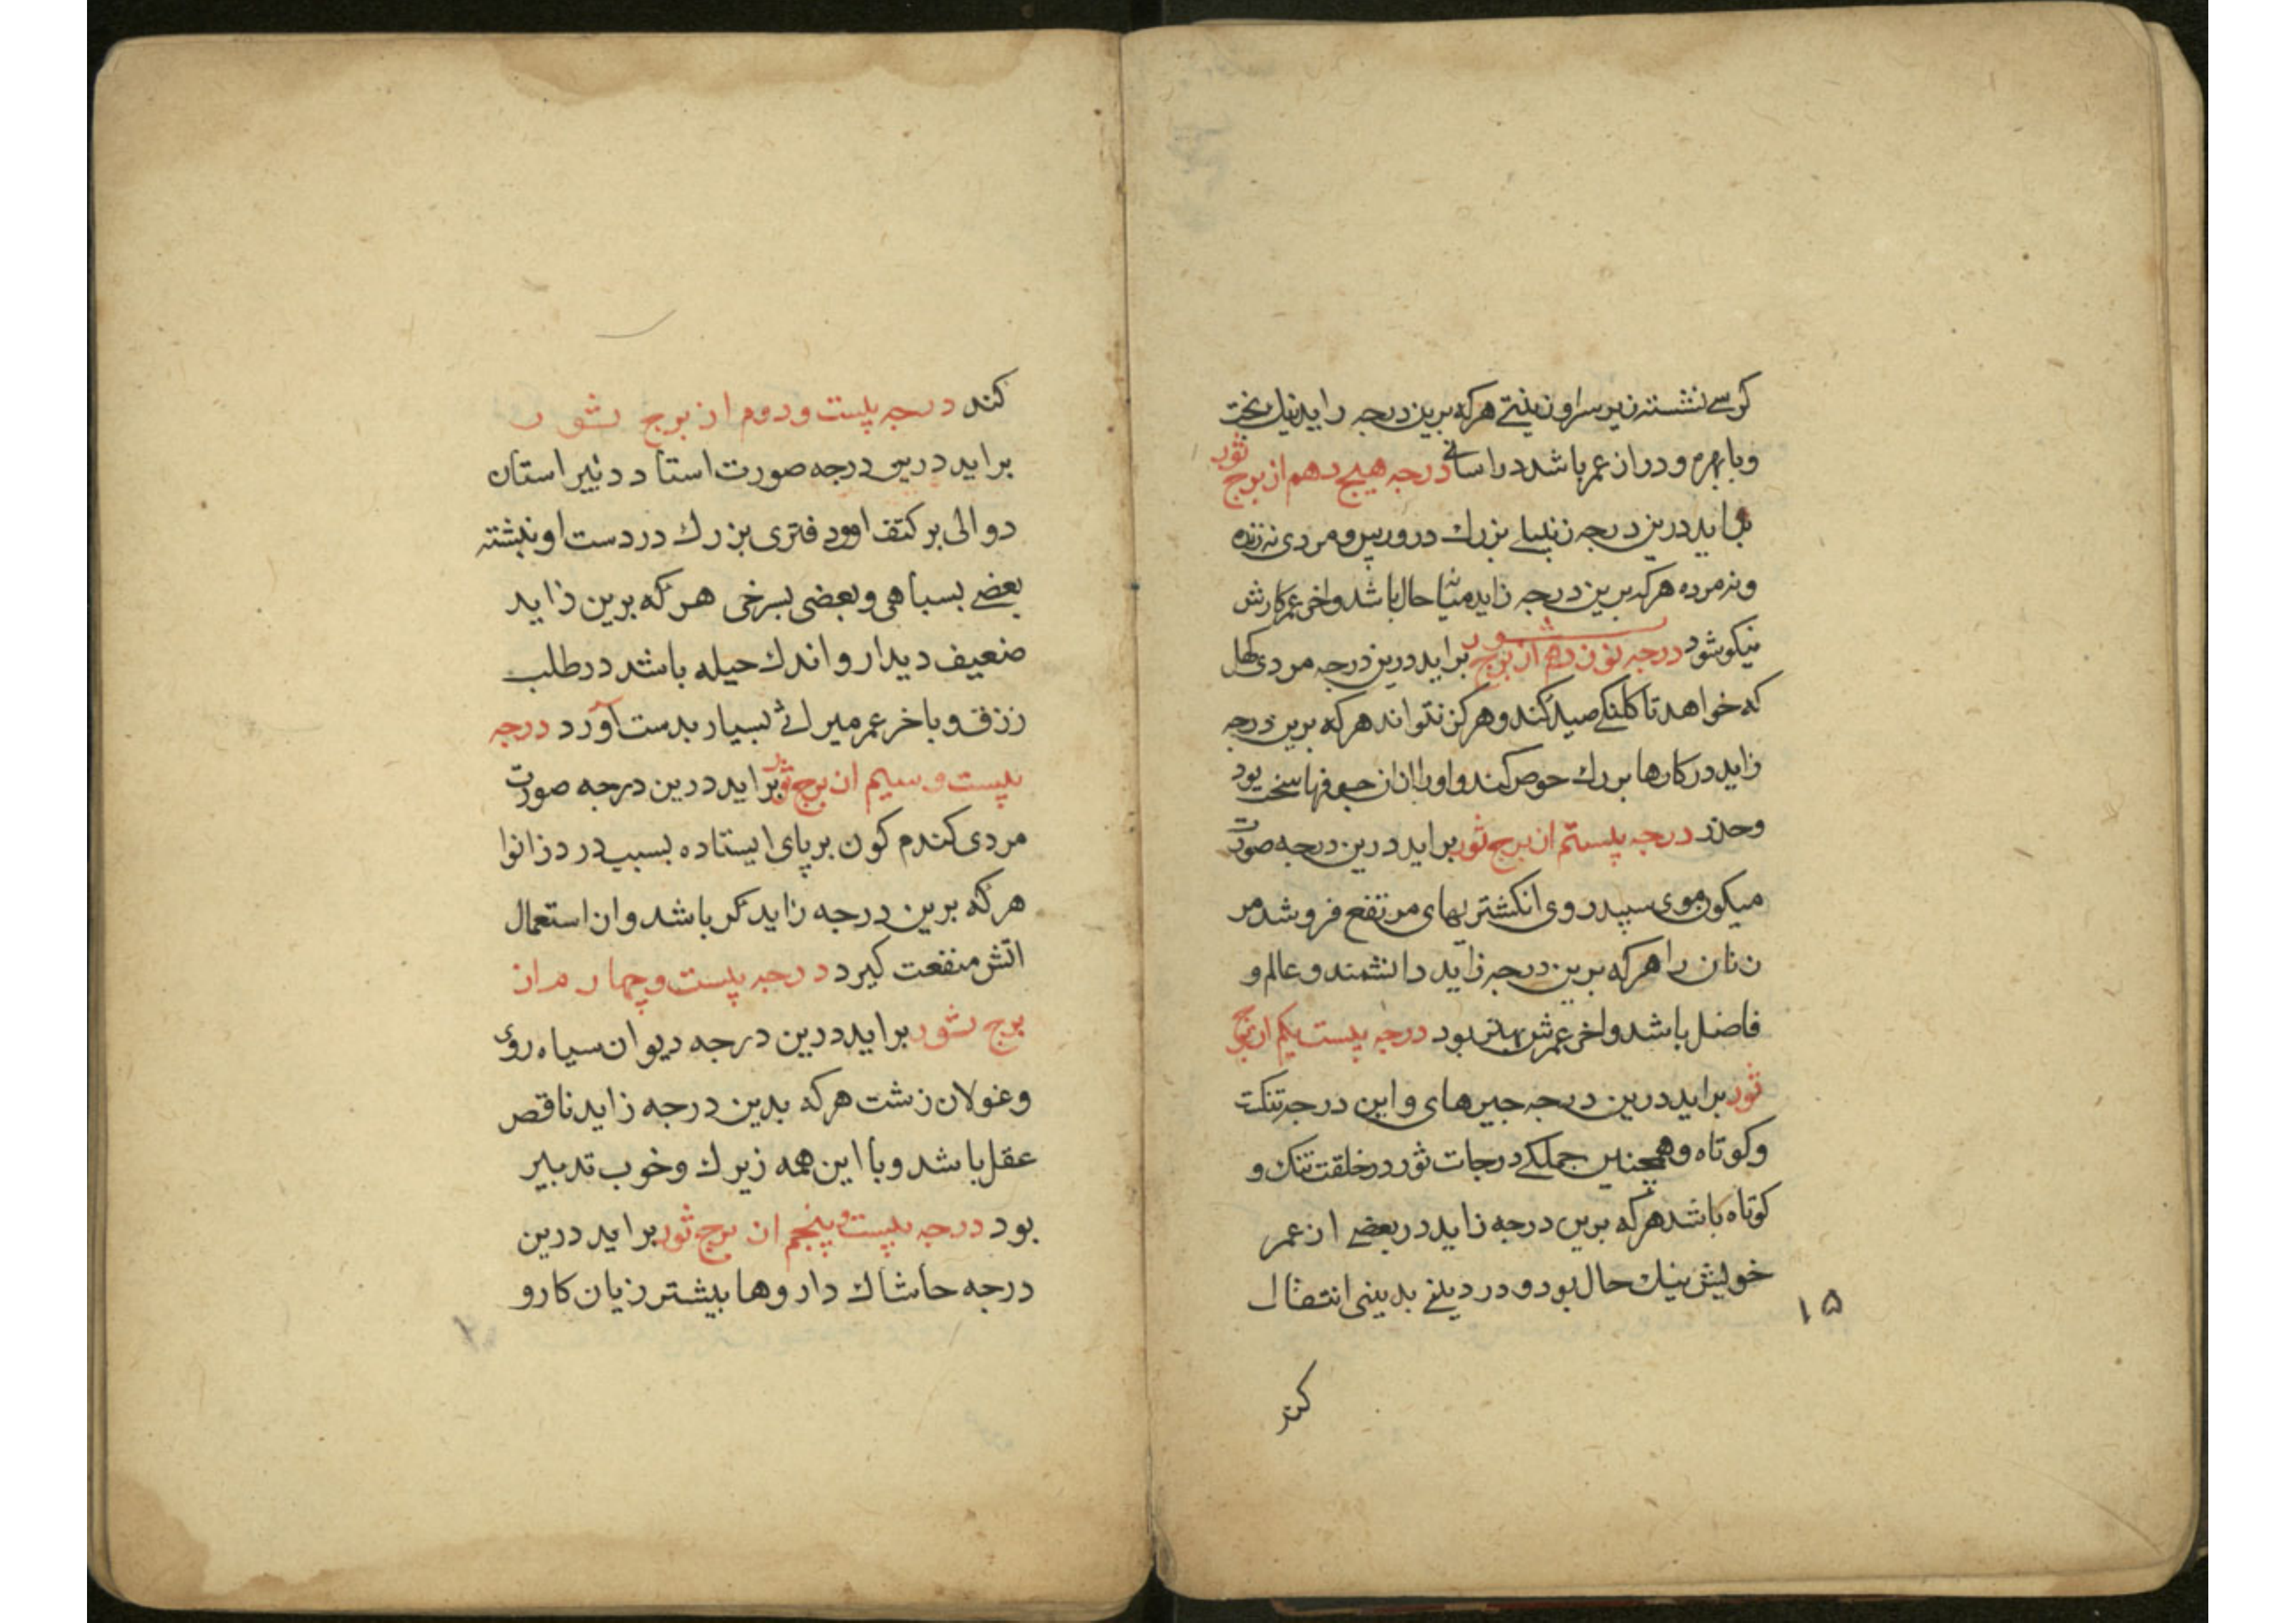 کرسے نشسته زیر سراو زینتے هرکه برین درجه زاید نیك بخت
وبا بهره ودراز عمر باشد دراسانے درجه هیجدهم از برج ثور
براید درین درجه زنبیلے بزرك دروپس ومردی نه زنده
ونه مرده هرکه برین درجه زاید میانه حال باشد واخر عمر کارش
نیکو شود درجه نوزدهم از برج ثور براید درین درجه مردی کهل
که خواهد تا کلنکے صید کند وهرکز نتواند هرکه برین درجه
زاید درکارها بزرك حوص کند واورا ازان خوفها سخت بود
وحذر درجه پیستم از برج ثور براید درین درجه صورت
میکون موی سپید روی انکشتر بهای مرتفع فروشد مر
زنان را هرکه برین درجه زاید دانشمند وعالم و
فاضل باشد واخر عمرش بهتر بود درجه پیست یکم از برج
ثور براید درین درجه جبرهای واین درجه تنکت
وکوتاه وهمچنین جملکے درجات ثور درخلقت تنك و
کوتاه باشد هرکه برین درجه زاید دربعضے از عمر
خویش نیك حال بود ودر دینے بدینی انتقال
۱۵
کند
کند درجه پیست ودوم از برج ثور
براید درین درجه صورت استاد دبیر استان
دوالی بر کتف او ودفتری بزرك دردست او نبشته
بعضے بسیاهی وبعضی بسرخی هرکه برین زاید
ضعیف دیدار واندك حیله باشد درطلب
رزق وباخر عمر میراثے بسیار بدست آورد درجه
پیست وسیم از برج ثور براید درین درجه صورت
مردی کندم کون برپای ایستاده بسبب درد زانوا
هرکه برین درجه زاید کر باشد وان استعمال
اتش منفعت کیرد درجه پیست وچهارم از
برج ثور براید درین درجه دیوان سیاه روی
وغولان زشت هرکه بدین درجه زاید ناقص
عقل باشد وبا این همه زیرك وخوب تدبیر
بود درجه پیست وپنجم از برج ثور براید درین
درجه حاشاك داروها بیشتر زیان کار و